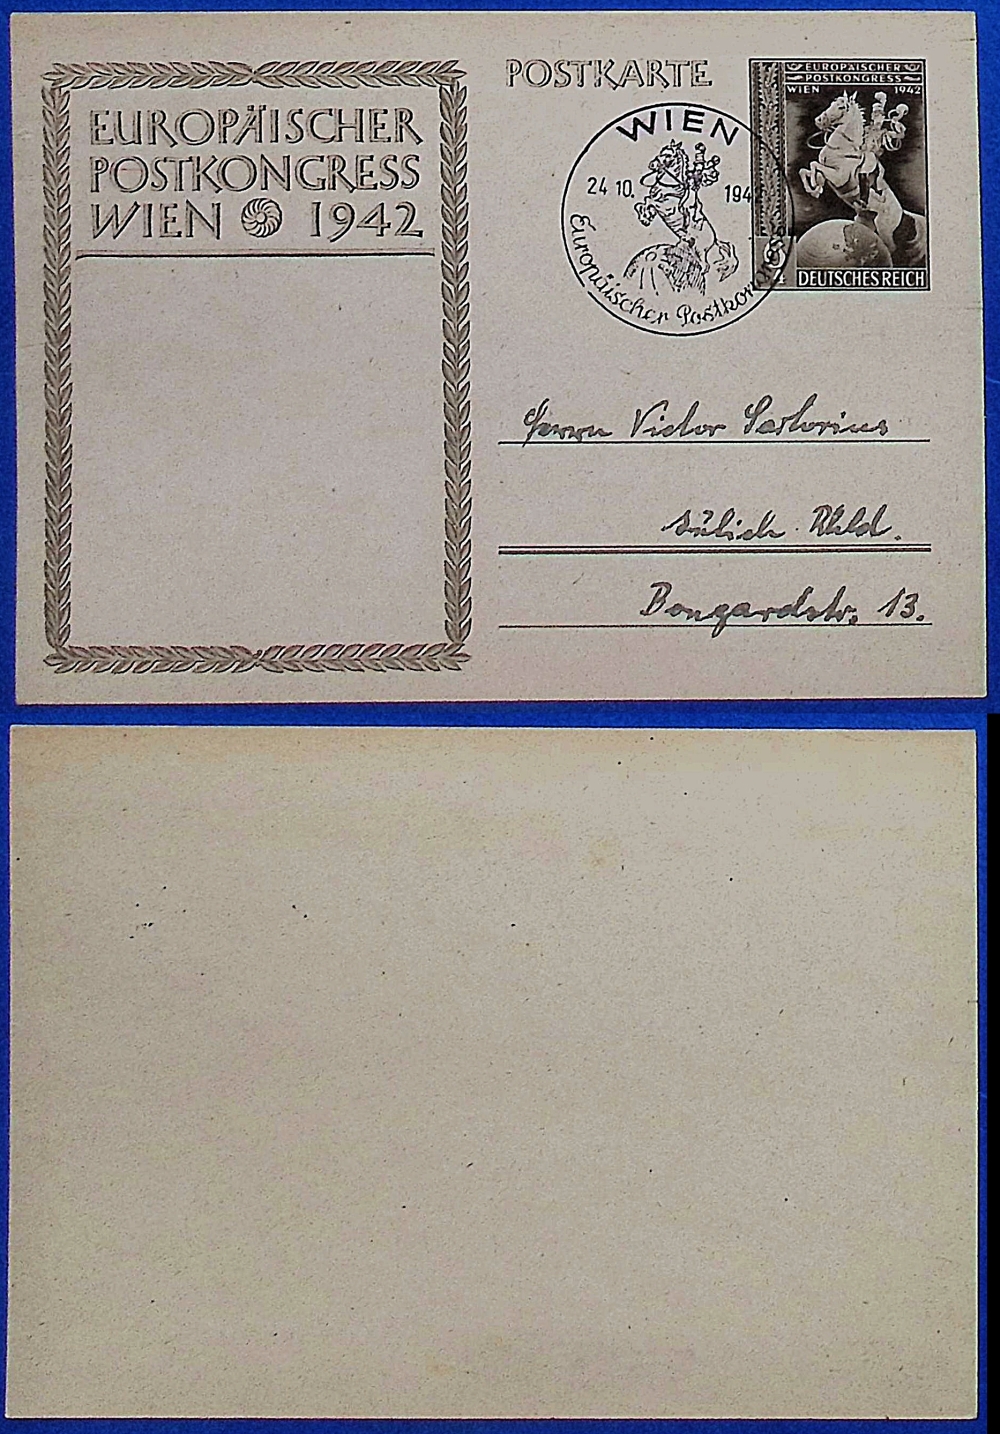 EUROPÄISCHER
POSTKONGRESS
WIEN 1942
POSTKARTE
EUROPÄISCHER
POSTKONGRESS
WIEN 1942
DEUTSCHES REICH
WIEN
24 10. 1942
Europäischer Postkongress
Herrn Victor Sartorius
Jülich Rhld.
Bongardstr. 13.